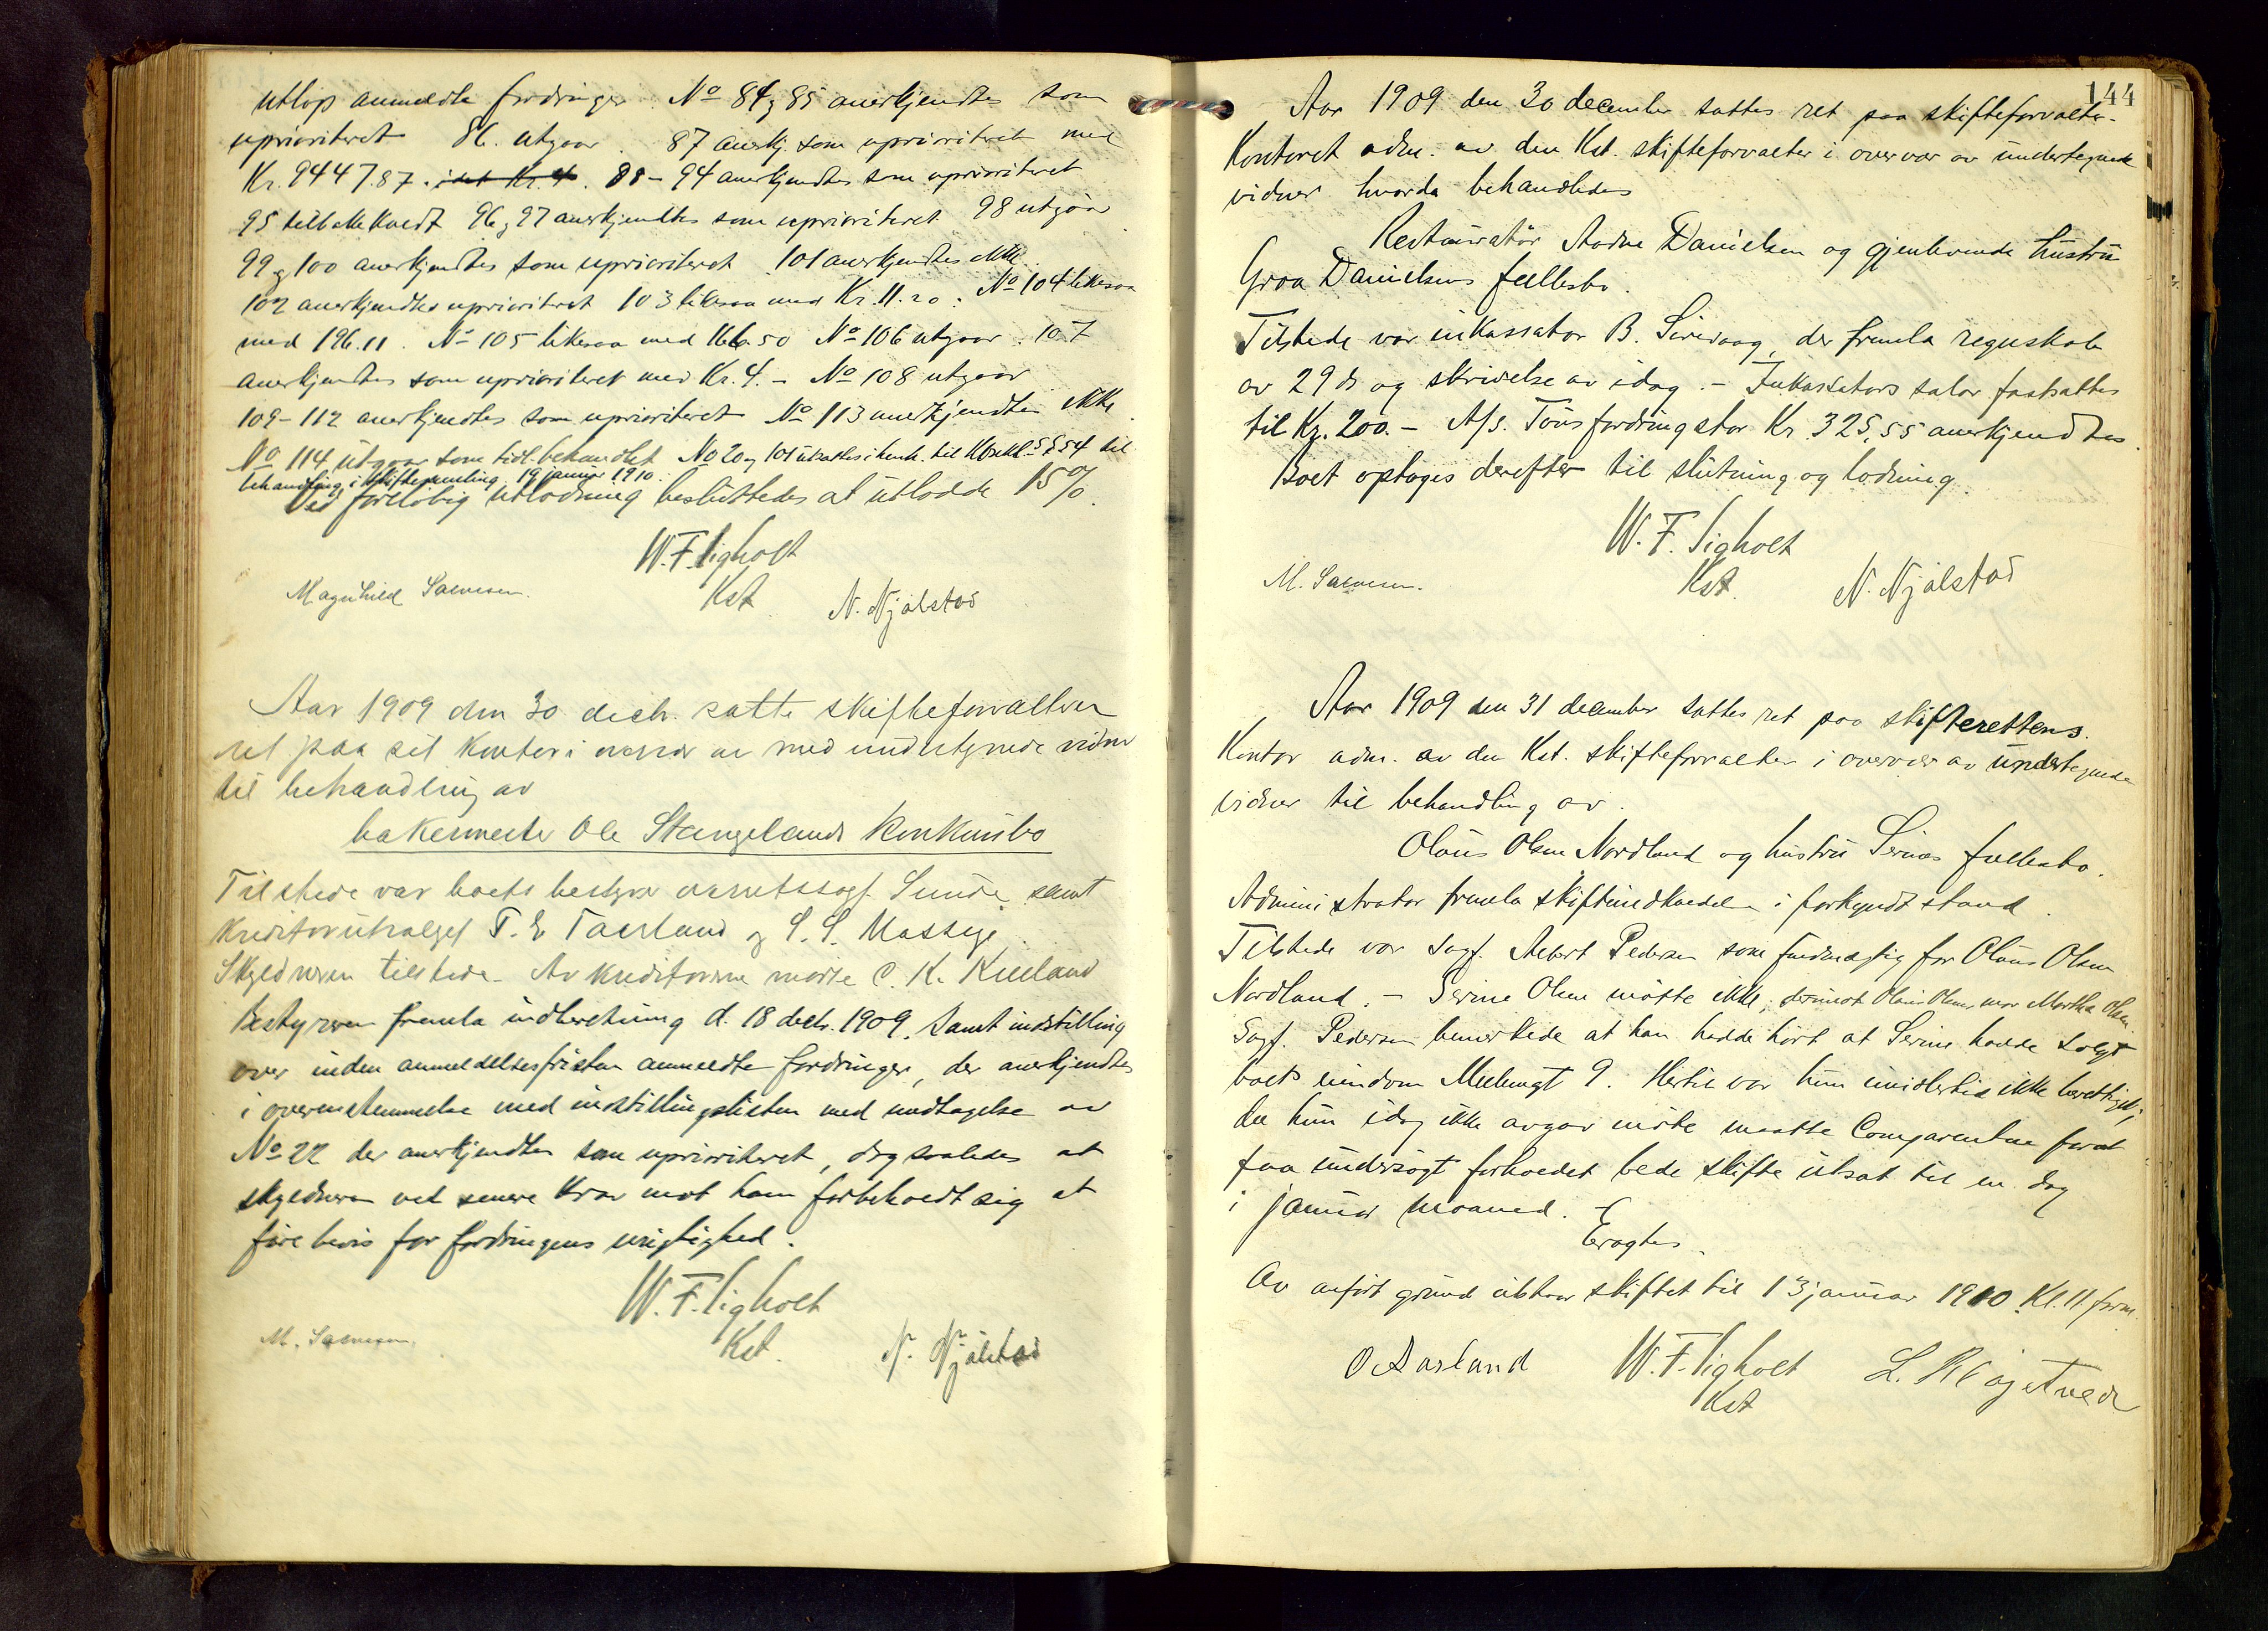 utløp anmeldte fordringer. No 84 og 85 anerkjendtes som
uprioriteret 86. utgaar. 87 anerkj. som uprioriteret med
Kr. 9447.87. 88-94 anerkjendtes som uprioriteret
95 tilbakekaldt 96 og 97 anerkjendtes som uprioriteret 98 utgaar
99 og 100 anerkjendtes som uprioriteret 101 anerkjendtes ikke.
102 anerkjendtes uprioriteret 103 likesaa med Kr. 11.20. No 104 likesaa
med 196.11. No 105 likesaa med 166.50 No 106 utgaar. 107
anerkjendtes som uprioriteret med Kr. 4. - No 108 utgaar
109-112 anerkjendtes som uprioriteret No 113 anerkjendtes ikke.
No 114 utgaar som tidl. behandlet No 20 og 101 utsattes i henh. til Konkl. § 54 til
behandling i skiftesamling 19 januar 1910.
Ved foreløbig utlodning besluttedes at utlodde 15%.
W. F. Sigholt
Kst.
Magnhild Salvesen. N. Njålstad
Aar 1909 den 30 decbr. satte skifteforvalteren
ret paa sit kontor i overvær av med undertegnede vidner
til behandling av
bakermester Ole Stangelands Konkursbo
Tilstede var boets bestyrer overretssagf. Sunde, samt
kreditorutvalget T. E. Taarland og S. S. Mossige.
Skyldneren tilstede - Av kreditorerne møtte C. K. Kielland
Bestyreren fremla indberetning d. 18 decbr. 1909. Samt indstilling
over inden anmeldelsesfristen anmeldte fordringer, der anerkjendtes
i overensstemmelse med indstillingslisten med undtagelse av
No 22 der anerkjendtes som uprioriteret, dog saaledes at
skyldneren ved senere krav mot ham forbeholdt sig at
føre bevis for fordringens urigtighed.
W. F. Sigholt
Kst.
M. Salvesen. N. Njålstad
144
Aar 1909 den 30 december sattes ret paa skifteforvalter-
Kontoret adm. av den Kst. skifteforvalter i overvær av undertegnede
vidner hvorda behandledes
Restauratør Aadne Danielsen og gjenlevende hustru
Groa Danielsens fællesbo.
Tilstede var inkassator B. Sirevaag, der fremla regnskab
av 29 ds og skrivelse av idag. - Inkassators salær fastsattes
til Kr. 200. - A/s. Tous fordring stor Kr. 325,55 anerkjendtes
Boet optages derefter til slutning og lodning.
W. F. Sigholt
Kst.
M. Salvesen. N. Njålstad
Aar 1909 den 31 december sattes ret paa skifterettens
Kontor adm. av den Kst. skifteforvalter i overvær av undertegnede
vidner til behandling av.
Olaus Olsen Nordland og hustru Serines fællesbo.
Administrator fremla skifteindkaldelse i forkyndt stand.
Tilstede var sagf. Albert Pedersen som fuldmægtig for Olaus Olsen
Nordland. - Serine Olsen møtte ikke; derimot Olaus Olsens mor Martha Olsen.
Sagf. Pedersen bemerkede at han hadde hørt at Serine hadde solgt
boets eiendom Meelingt 9. Hertil var hun imidlertid ikke berettiget;
da hun idag ikke avgav møte maatte Comparenten forat
faa undersøgt forholdet bede skiftet utsat til en dag
i januar maaned.
Eragtes
Av anført grund utstaar skiftet til 13 januar 1910 Kl. 11 form.
O Aasland W. F. Sigholt
Kst